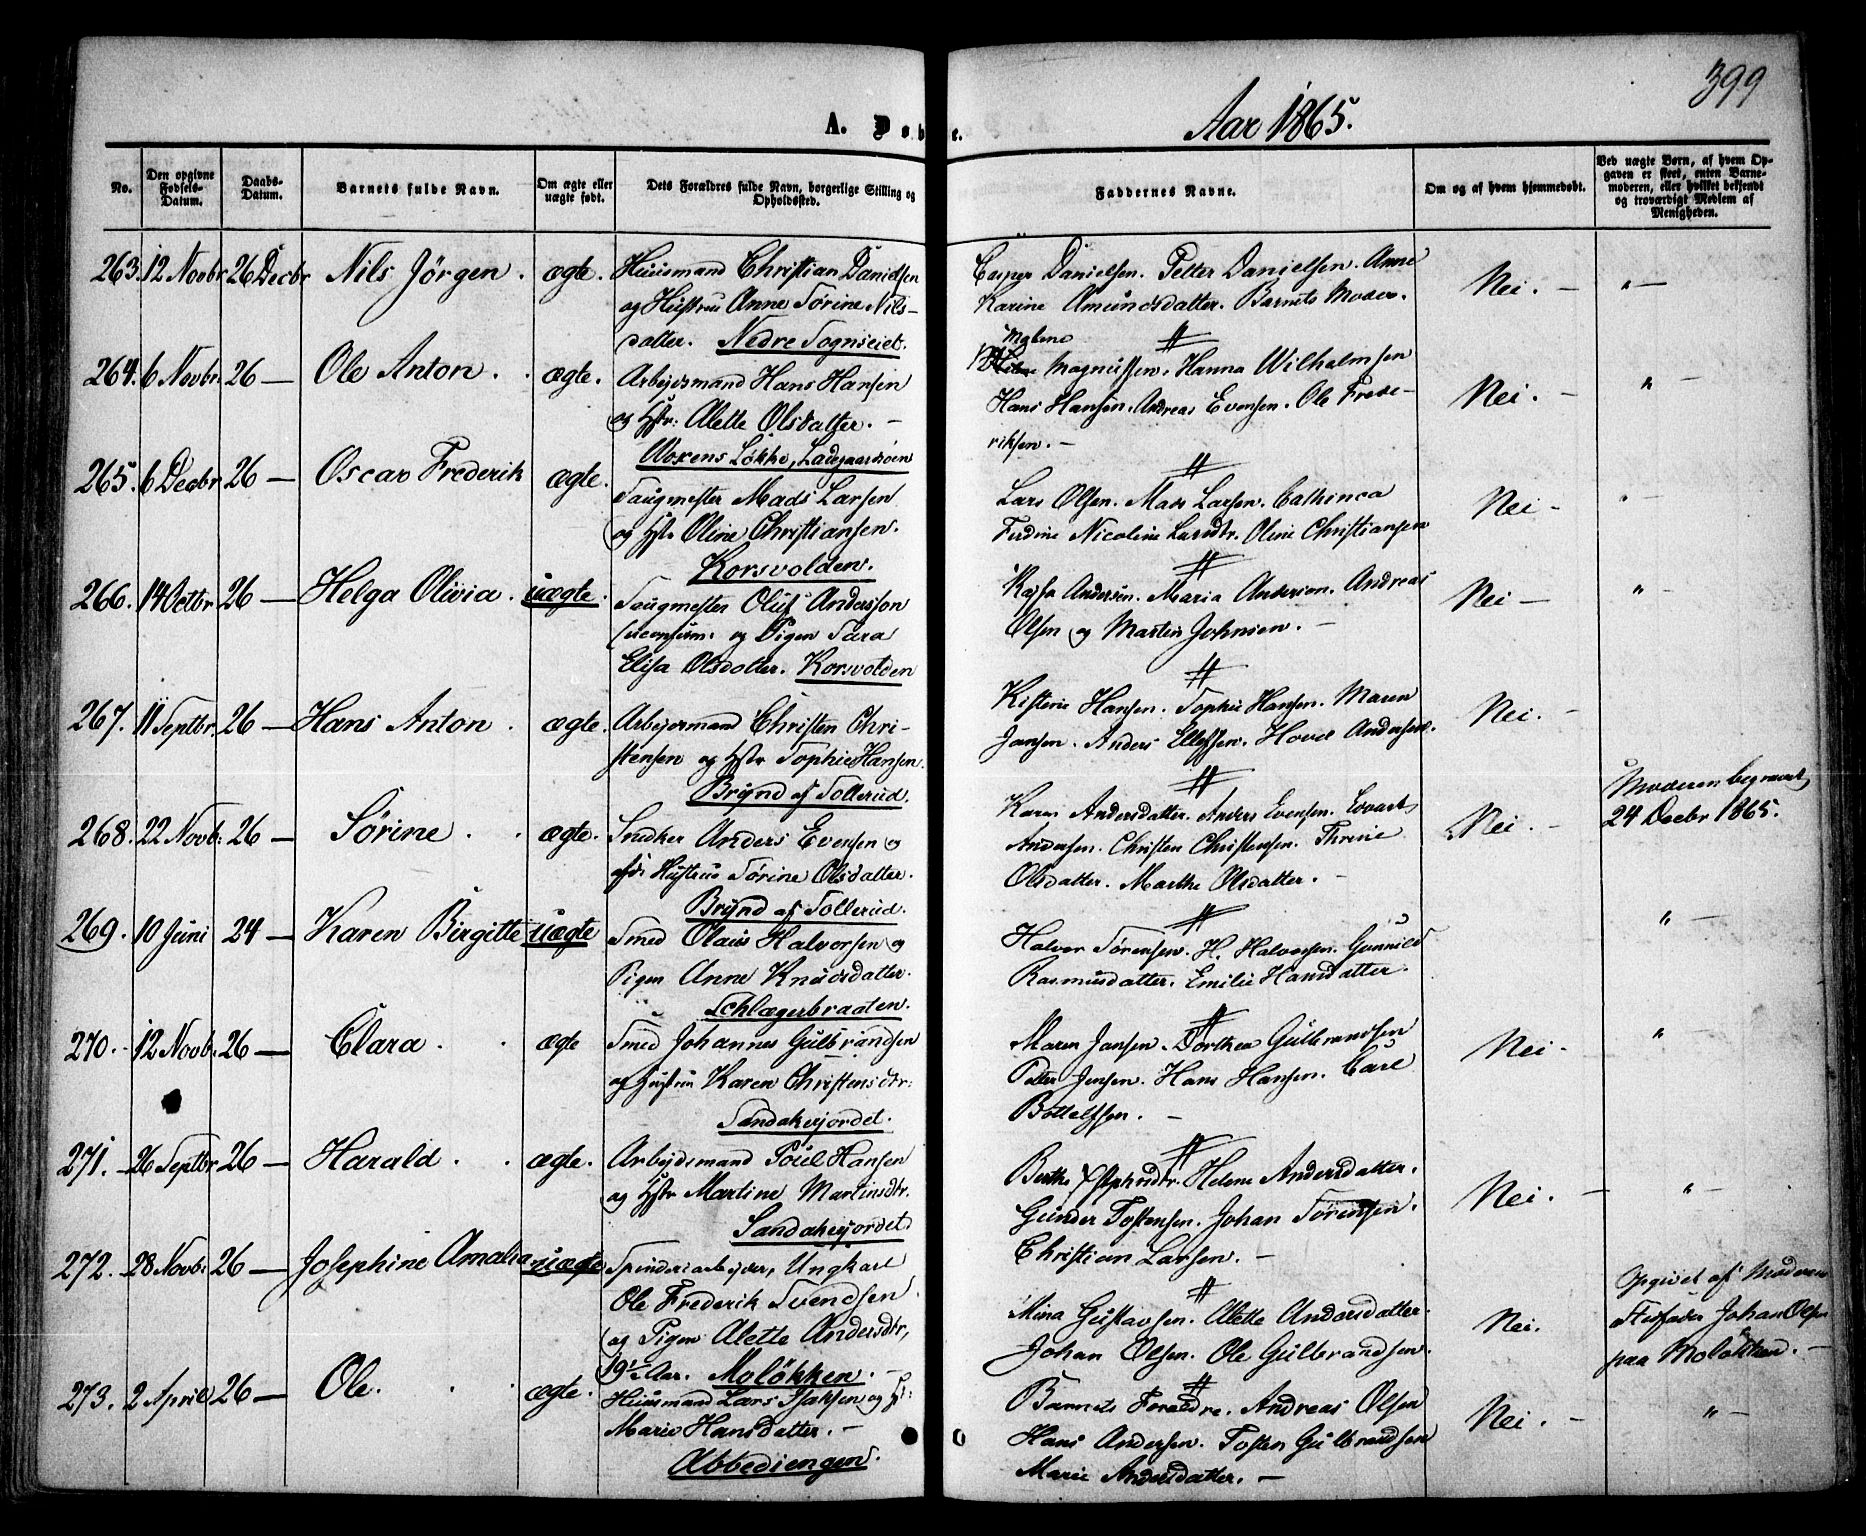 399
A. Døbte.
Aar 1865.
No.
Den opgivne Fødsels-Datum.
Daabs-Datum.
Barnets fulde Navn.
Om ægte eller uægte født.
Dets Forældres fulde Navn, borgerlige Stilling og Opholdssted.
Faddernes Navne.
Om og af hvem hjemmedøbt.
Ved uægte Børn, af hvem Opgaven er skeet, enten Barnemoderen, eller hvilket bekjendt og troværdigt Medlem af Menigheden.
263. 12 Novbr 26 Decbr Nils Jörgen. ægte. Huusmand Christian Danielsen
og Hustru Anne Sörine Nils-
datter. Nedre Sognseiet.
Casper Danielsen. Petter Danielsen. Anne
Karine Amundsdatter. Barnets Moder.
Nei. — " —
264. 6 Novbr. 26 — Ole Anton. ægte. Arbejdsmand Hans Hansen
og Hstr: Alette Olsdatter. —
Woxens Løkke, Ladegaardsøen
Malene
Magnussen. Hanna Wilhelmsen
Hans Hansen. Andreas Evensen. Ole Frede-
riksen. —
Nei. — " —
265. 6 Decbr 26 — Oscar Frederik ægte. Saugmester Mads Larsen
og Hstr Oline Christiansen.
Korsvolden.
Lars Olsen. Mads Larsen. Cathinca
Ferdine Nicoline Larsdtr. Oline Christiansen
Nei — " —
266. 14 Octbr 26 — Helga Olivia. uægte. Saugmester Oluf Andersson
og Pigen Sara
Elisa Olsdatter. Korsvolden
Kajsa Andersen. Maria Andersen. Andreas
Olsen og Martin Johnsen. —
Nei — " —
267. 11 Septbr. 26 — Hans Anton. ægte. Arbejdsmand Christen Chri-
stensen og Hstr Sophie Hansen.
Brÿnd af Tollerud.
Kistine Hansen. Sophie Hansen. Maren
Jansen. Anders Ellefsen. Hover Andersen.
Nei. —
268. 22 Novb: 26 — Sörine. ægte. Snedker Anders Evensen og
afd: Hustru Sörine Olsdatter.
Brÿnd af Tollerud.
Karen Andersdatter. Anders Evensen. Edvart
Andersen. Christen Christensen. Thrine
Olsdatter. Marthe Olsdatter. —
Nei. —
Moderen begravet
24 Decbr 1865.
269. 10 Juni 24 — Karen Birgitte uægte Smed Olaus Halvorsen og
Pigen Anne Knudsdatter.
Schlægerbraaten.
Halvor Sörensen. H. Halvorsen. Gunnild
Rasmusdatter. Emilie Hansdatter.
" —
270. 12 Novb. 26 — Clara. ægte Smed Johannes Gulbrandsen
og Hustru Karen Christensdtr:
Sandakerjordet.
Maren Jansen. Dorthea Gulbrandsen
Petter Jensen. Hans Hansen. Carl
Bottelfsen. —
Nei — " —
271. 26 Septbr 26 — Harald. ægte. Arbejdsmand Poul Hansen
og Hstr Martine Martinsdtr.
Sandakerjordet
Berthe Helene Andersdatter.
Gunder Tostensen. Johan Sörensen.
Christian Larsen. —
Nei. — " —
272. 28 Novb. 26 — Josephine Amalia uægte Spinderiarbejder, Ungkarl
Ole Frederik Svendsen.
og Pigen Alette Andersdtr,
19½ Aar. Moløkken. —
Mina Gustavsen. Alette Andersdatter.
Johan Olsen. Ole Gulbrandsen.
Nei.
Opgivet af Moderens
Stedfader Johan Olsen
paa Moløkken. —
273. 2 April 26 — Ole. ægte. Huusmand Lars Isaksen og H:
Marie Hansdatter. —
Abbediengen.
Barnets Forældre. Andreas Olsen
Hans Andersen. Tosten Gulbrandsen
Marie Andersdatter. —
Nei. — " —